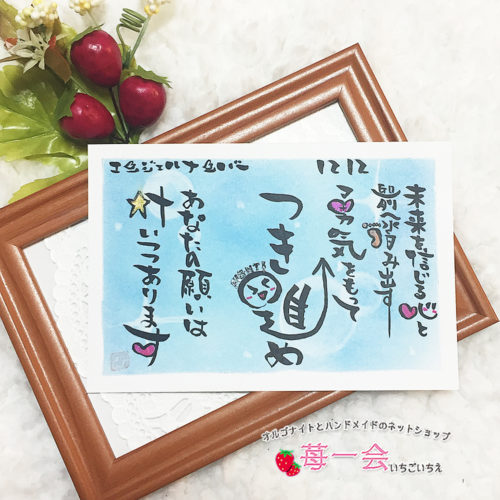 エンジェルナンバー 1212
未来を信じる心と
前へ踏み出す
勇気をもって
つき進め
あなたの願いは
叶いつつあります
オルゴナイトとハンドメイドのネットショップ
苺一会 いちごいちえ